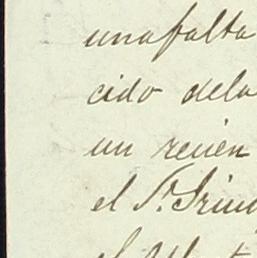 unafalta
cido dela
un recien
el Sr.
el